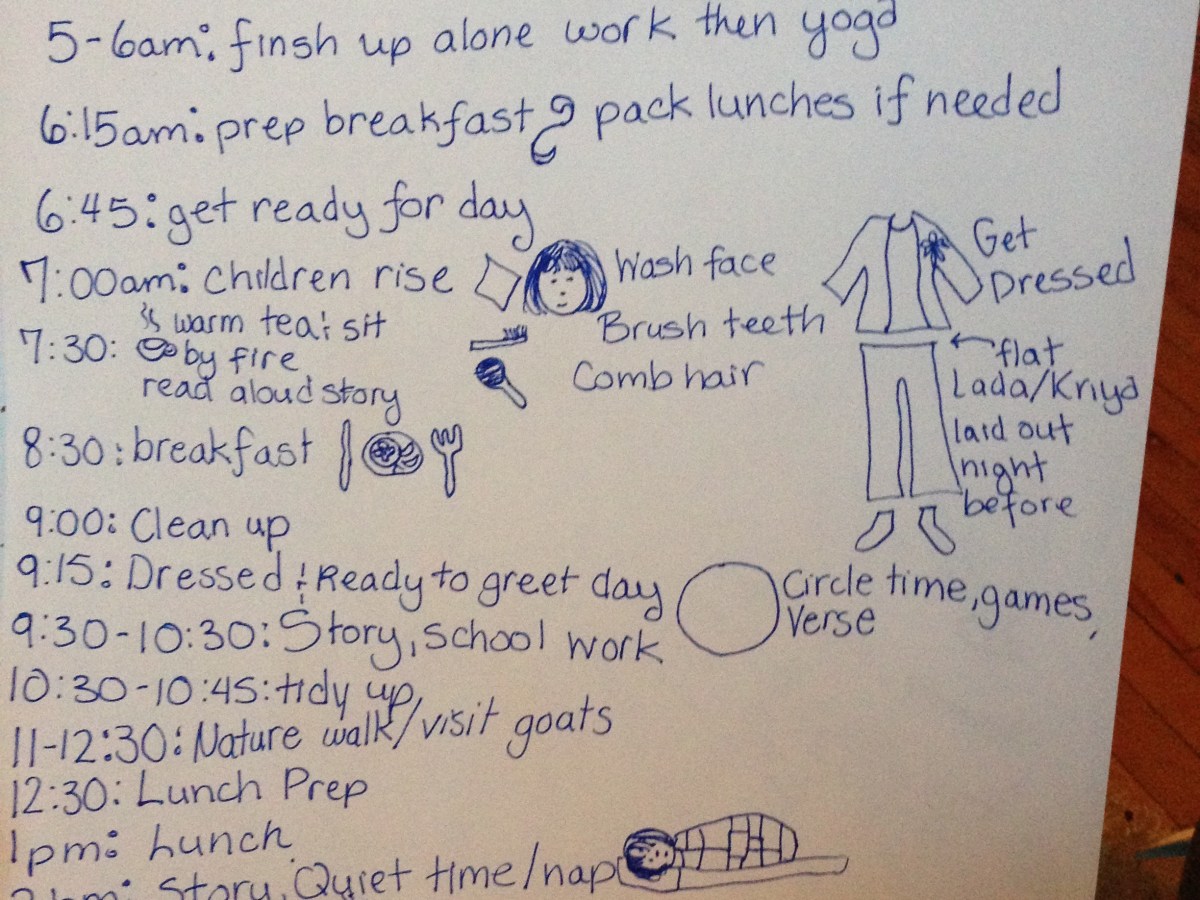 5-6am: finsh up alone work then yoga
6:15am: prep breakfast & pack lunches if needed
6:45: get ready for day
7:00am: Children rise
Wash face
Brush teeth
Comb hair
Get
Dressed
flat
Lada/Kriya
laid out
night
before
7:30: warm tea & sit
by fire
read aloud story
8:30: breakfast
9:00: Clean up
9:15: Dressed & Ready to greet day
Circle time, games,
Verse
9:30-10:30: Story, school work
10:30-10:45: tidy up
11-12:30: Nature walk/visit goats
12:30: Lunch Prep
1pm: Lunch
Story, Quiet time/nap